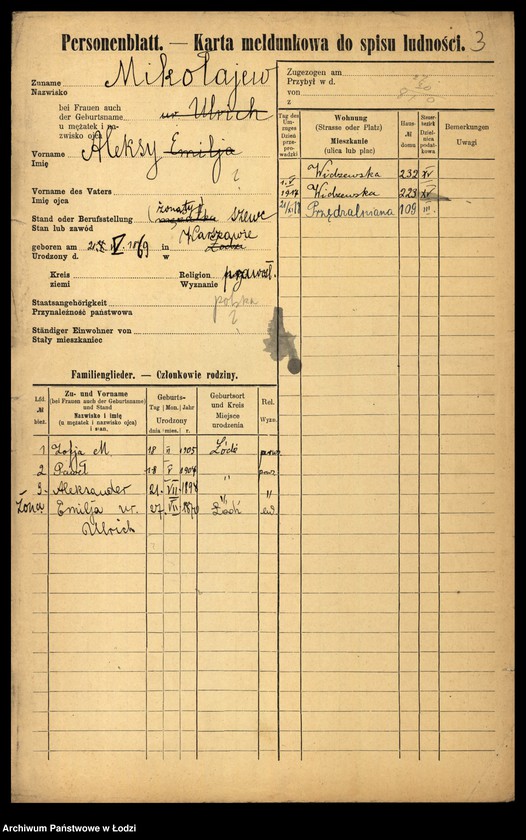 Personenblatt. — Karta meldunkowa do spisu ludności. 3
Zuname Mikołajew
Nazwisko
bei Frauen auch
der Geburtsname ur. Ulrich
u mężatek i na-
zwisko ojca
Vorname Aleksy Emilja
Imię
Vorname des Vaters
Imię ojca
Stand oder Berufsstellung (żonaty) szewc
Stan lub zawód
geboren am 21 V 1869 in Warszawie
Urodzony d. w Łodzi
Kreis Religion prawosł.
ziemi Wyznanie
Staatsangehörigkeit polska
Przynależność państwowa
Ständiger Einwohner von
Stały mieszkaniec
Zugezogen am
Przybył w d.
von
z
Tag des Um-zuges Dzień prze-prowadzki
Wohnung
(Strasse oder Platz)
Mieszkanie
(ulica lub plac)
Haus-
№
domu
Steuer-bezirk Dzielnica podatkowa
Bemerkungen
Uwagi
Widzewska 232 XV
1917 Widzewska 223 XV
Przędzalniana 109 III
Familienglieder. — Członkowie rodziny.
Lfd.
№
bież.
Zu- und Vorname
(bei Frauen auch der Geburtsname)
und Stand
Nazwisko i imię
(u mężatek i nazwisko ojca)
i stan.
Geburts-
Tag Mon. Jahr
Urodzony
dnia mies. r.
Geburtsort
und Kreis
Miejsce
urodzenia
Rel.
Wyzn.
1 Zofja M. 18 II 1905 Łódź praw.
2 Paweł 18 V 1904 " pra
3. Aleksander 21. VII 1898 " "
Żona Emilja ur. 27. VII 1870 Łódź ew
Ulrich
Archiwum Państwowe w Łodzi